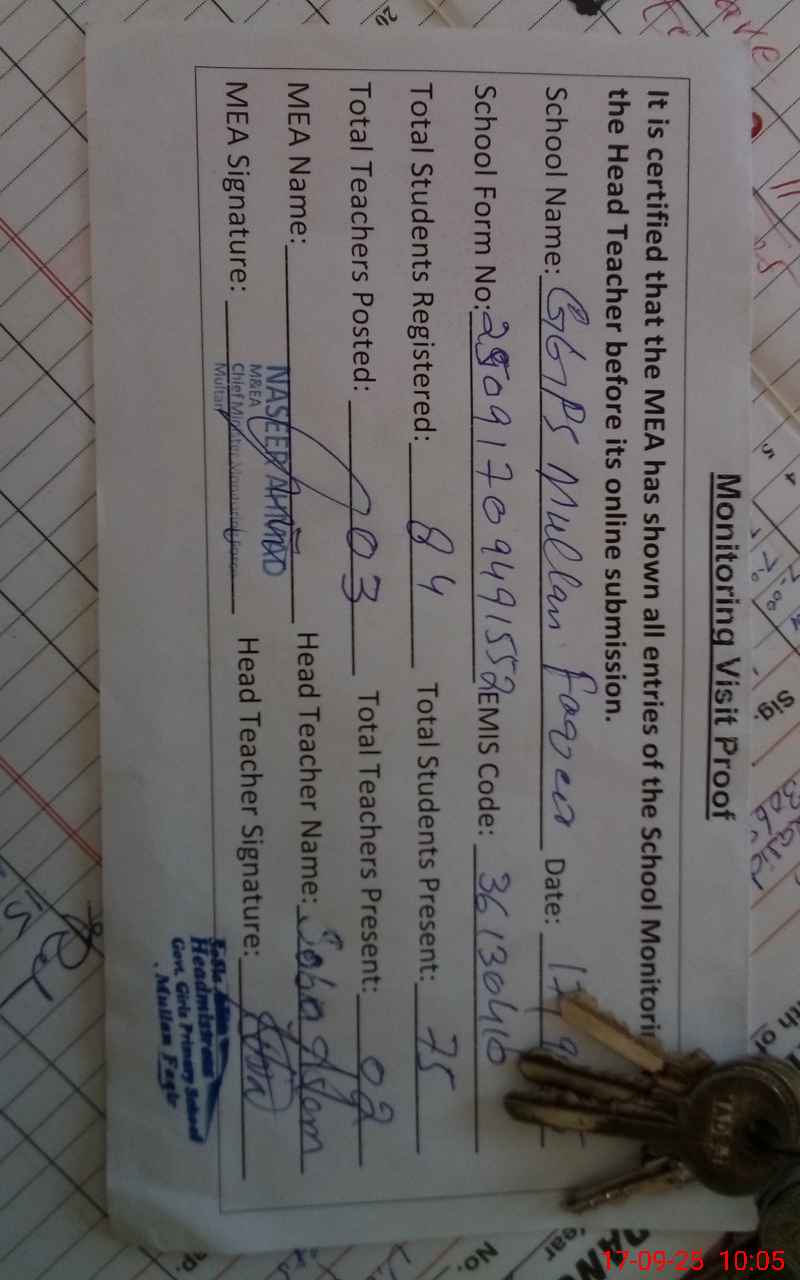 Monitoring Visit Proof
It is certified that the MEA has shown all entries of the School Monitori
the Head Teacher before its online submission.
School Name: GGPS Mullan Faqeer Date: 17
School Form No: EMIS Code: 36130416
Total Students Registered: 84 Total Students Present: 75
Total Teachers Posted: 03 Total Teachers Present: 02
MEA Name: NASEER AHMAD Head Teacher Name: Saba Aslam
M&EA
MEA Signature: Head Teacher Signature:
Chief Minister's
Multan
Headmistress
Govt. Girls Primary School
Mullan Faqir
Sig.
No.
17-09-25 10:05